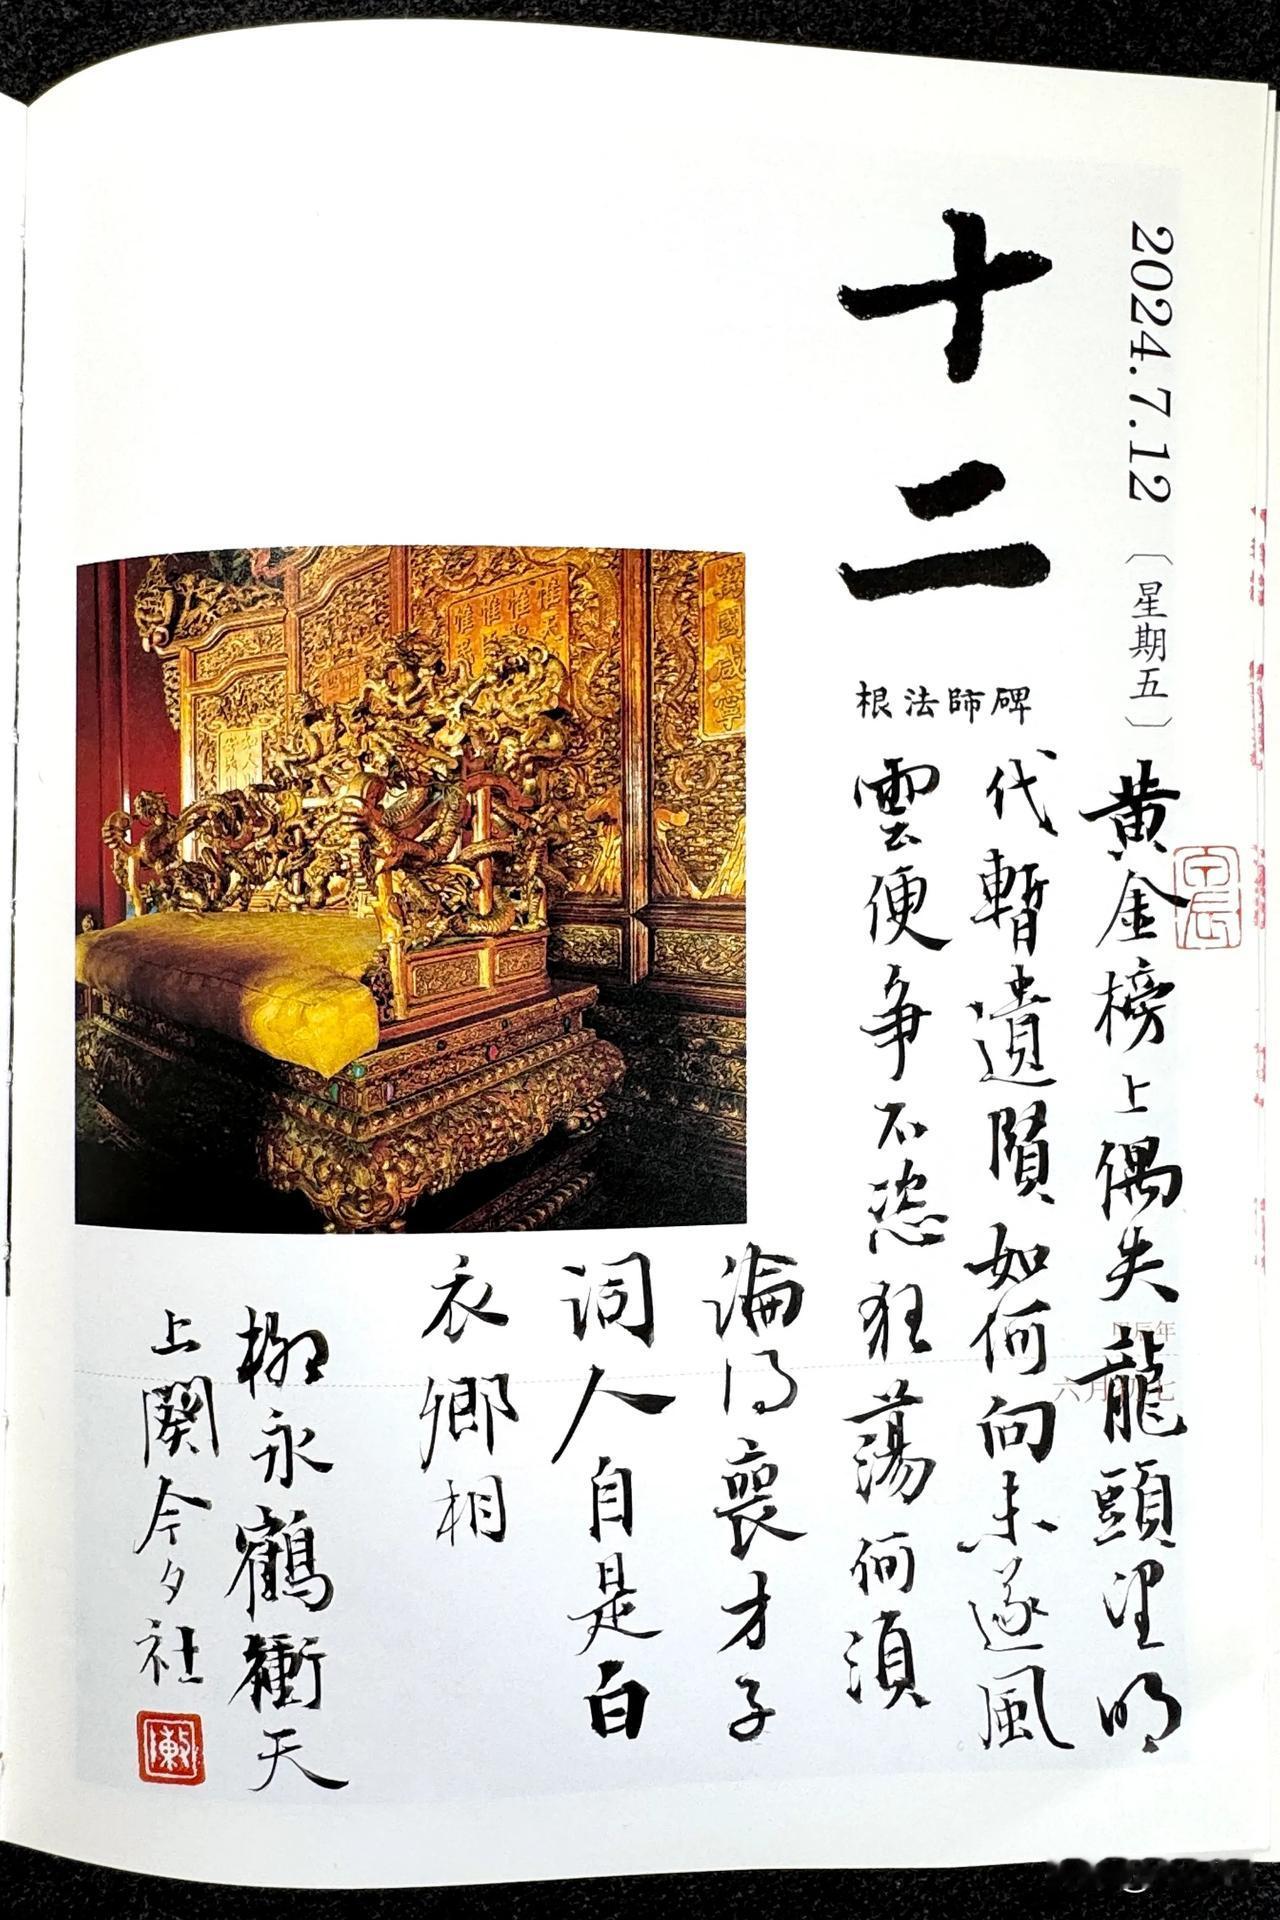 2024.7.12
〔星期五〕
十二
根法師碑
甲辰年
六月初七
黄金榜上偶失龍頭望明
代暫遺賢如何向未遂風
雲便争不恣狂蕩何須
論得喪才子
詞人自是白
衣卿相
柳永鶴衝天
上闋今夕社
國咸寧